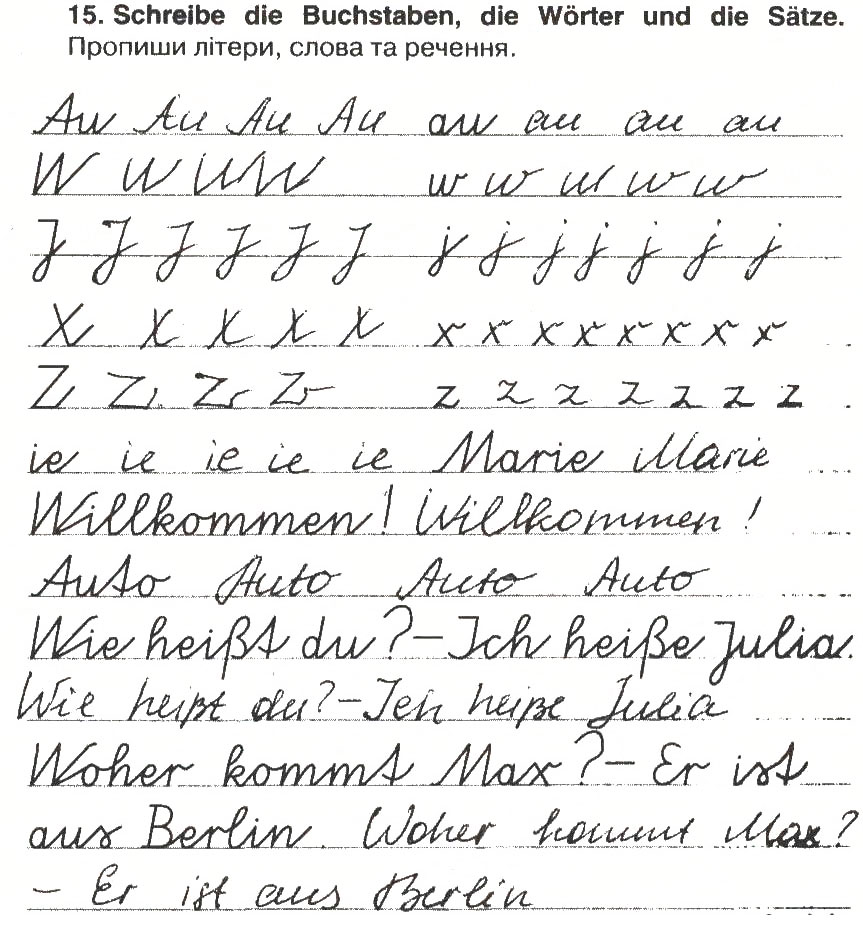 15. Schreibe die Buchstaben, die Wörter und die Sätze.
Пропиши літери, слова та речення.
Au Au Au Au au au au au
W W W W w w w w w
J J J J J J j j j j j j j
X X X X X x x x x x x x x
Z Z Z Z z z z z z z z
ie ie ie ie ie Marie Marie
Willkommen! Willkommen!
Auto Auto Auto Auto
Wie heißt du? – Ich heiße Julia.
Wie heißt du? – Ich heiße Julia
Woher kommt Max? – Er ist
aus Berlin. Woher kommt Max?
– Er ist aus Berlin